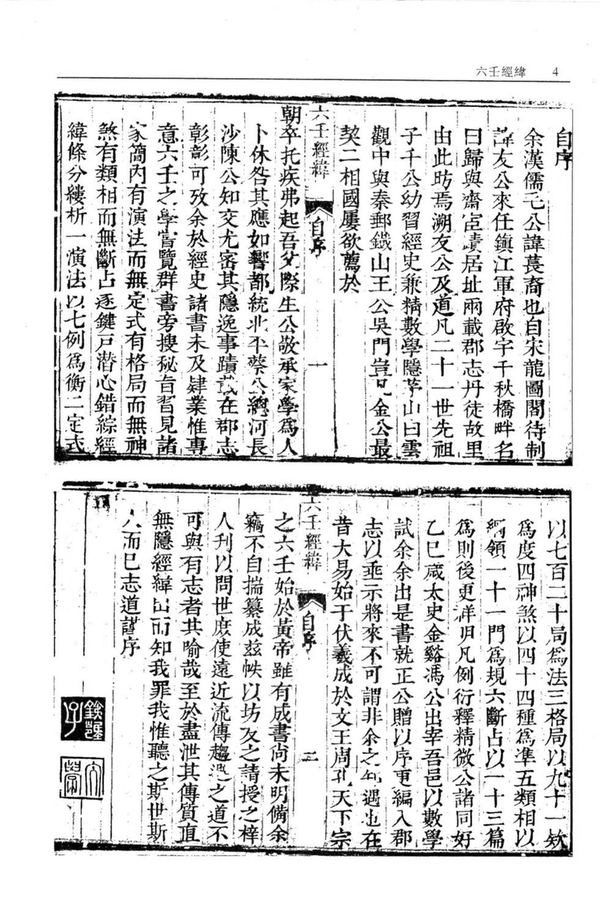 六壬經緯 4
自序
余漢儒毛公諱萇裔也自宋龍圖閣待制
諱友公來任鎮江軍府啟宇千秋橋畔名
曰歸與齋宦蹟居址兩載郡志丹徒故里
由此昉焉溯友公及道凡二十一世先祖
子千公幼習經史兼精數學隱茅山白雲
觀中與秦郵鐵山王公吳門豈凡金公最
契二相國屢欲薦於
六壬經緯 自序 一
朝卒托疾弗起吾父際生公敬承家學為人
卜休咎其應如響都統北平蔡公總河長
沙陳公知交尤密其隱逸事蹟載在郡志
彰彰可攷余於經史諸書未及肄業惟專
意六壬之學嘗覽群書旁搜秘旨習見諸
家簡內有演法而無定式有格局而無神
煞有類相而無斷占逐鍵戶潛心錯綜經
緯條分縷析一演法以七例為衡二定式
以七百二十局為法三格局以九十一欸
為度四神煞以四十四種為準五類相以
綱領一十一門為規六斷占以一十三篇
為則後更詳明凡例衍釋精微公諸同好
乙巳歲太史金谿馮公出宰吾邑以數學
試余余出是書就正公贈以序更編入郡
志以垂示將來不可謂非余之知遇也在
昔大易始于伏羲成於文王周孔天下宗
六壬經緯 自序 二
之六壬始於黃帝雖有成書尚未明備余
竊不自揣纂成茲帙以坊友之請授之梓
人刋以問世庶使遠近流傳趨避之道不
可與有志者其喻哉至於盡泄其傳質直
無隱經緯出而知我罪我惟聽之斯世斯
人而已志道謹序